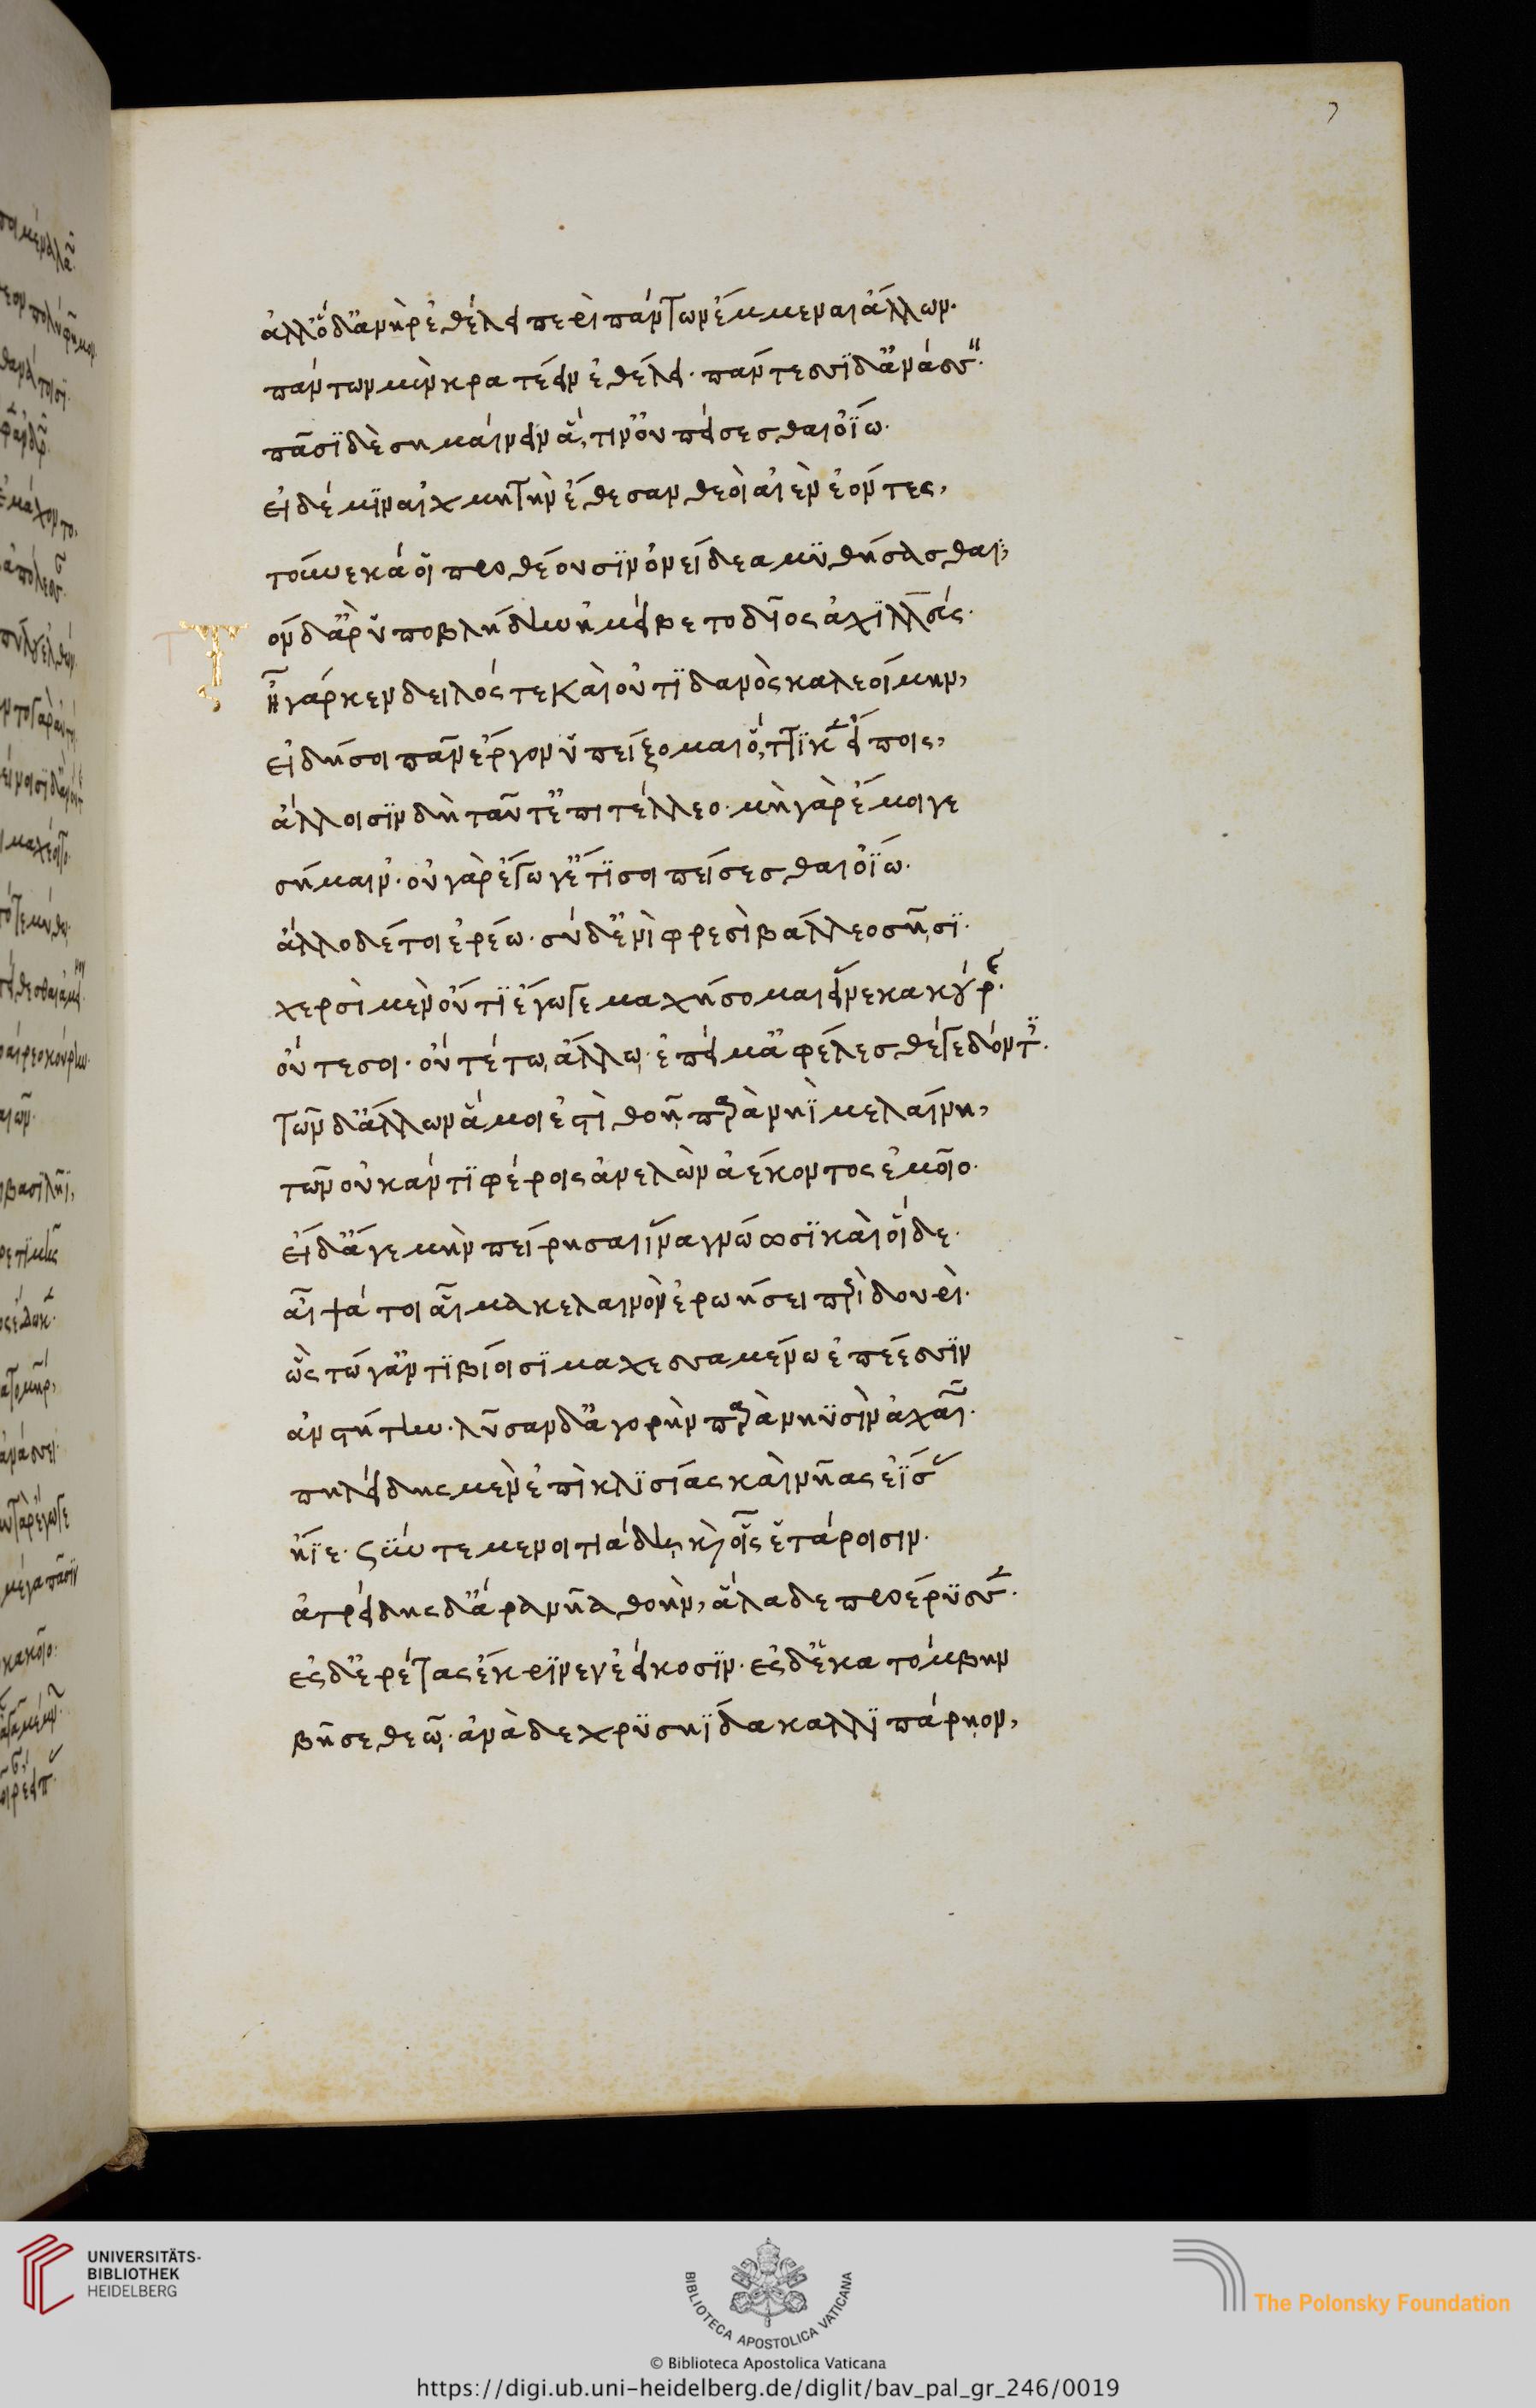 7
ἀλλ' ὅδ' ἀνὴρ ἐθέλει περὶ πάντων ἔμμεναι ἄλλων.
πάντων μὲν κρατέειν ἐθέλει. πάντεσσι δ' ἀνάσσειν.
πᾶσι δὲ σημαίνειν ἅ, τιν' οὐ πείσεσθαι ὀΐω.
εἰ δέ μιν αἰχμητὴν ἔθεσαν θεοὶ αἰὲν ἐόντες,
τοὔνεκά οἱ προθέουσιν ὀνείδεα μυθήσασθαι;
Τ
ὸν δ' ἄρ' ὑποβλήδην ἠμείβετο δῖος ἀχιλλεύς.
ἦ γάρ κεν δειλός τε καὶ οὐτιδανὸς καλεοίμην,
εἰ δή σοι πᾶν ἔργον ὑπείξομαι ὅ, ττι κεν εἴποις,
ἄλλοισιν δὴ ταῦτ' ἐπιτέλλεο. μὴ γὰρ ἔμοιγε
σήμαιν'. οὐ γὰρ ἔγωγ' ἔτι σοι πείσεσθαι ὀΐω.
ἄλλο δέ τοι ἐρέω. σὺ δ' ἐνὶ φρεσὶ βάλλεο σῇσι.
χερσὶ μὲν οὔτι ἔγωγε μαχήσομαι εἵνεκα κούρης.
οὔτε σοι. οὔτέ τῳ ἄλλῳ. ἐπεί μ' ἀφέλεσθέ γε δόντες.
τῶν δ' ἄλλων ἅ μοι ἐστὶ θοῇ παρὰ νηῒ μελαίνῃ,
τῶν οὐκ ἄν τι φέροις ἀνελὼν ἀέκοντος ἐμοῖο.
εἰ δ' ἄγε μὴν πείρησαι ἵνα γνώωσι καὶ οἵδε.
αἶψά τοι αἷμα κελαινὸν ἐρωήσει περὶ δουρί.
ὣς τώ γ' ἀντιβίοισι μαχεσσαμένω ἐπέεσσιν
ἀνστήτην. λῦσαν δ' ἀγορὴν παρὰ νηυσὶν ἀχαιῶν.
πηλείδης μὲν ἐπὶ κλισίας καὶ νῆας ἐΐσας
ἤϊε. σύν τε μενοιτιάδῃ, καὶ οἷς ἑτάροισιν.
ἀτρείδης δ' ἄρα νῆα θοὴν, ἅλαδε προέρυσσεν.
ἐς δ' ἐρέτας ἔκρινεν ἐείκοσιν. ἐς δ' ἑκατόμβην
βῆσε θεῷ. ἀνὰ δε χρυσηΐδα καλλιπάρῃον,
UNIVERSITÄTS-
BIBLIOTHEK
HEIDELBERG
BIBLIOTECA APOSTOLICA VATICANA
© Biblioteca Apostolica Vaticana
The Polonsky Foundation
https://digi.ub.uni-heidelberg.de/diglit/bav_pal_gr_246/0019